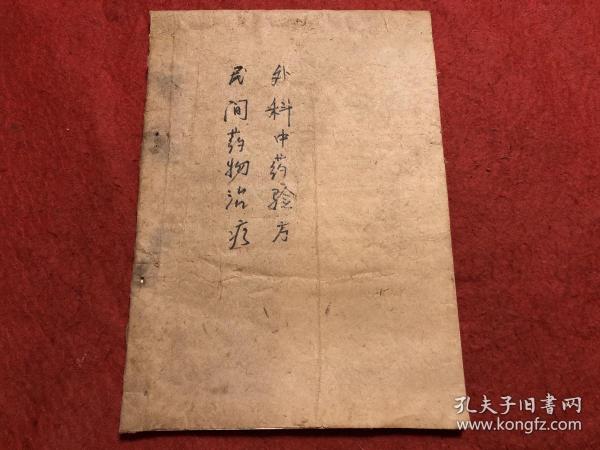 外科中药验方
民间药物治疗
孔夫子旧书网
www.kongfz.com